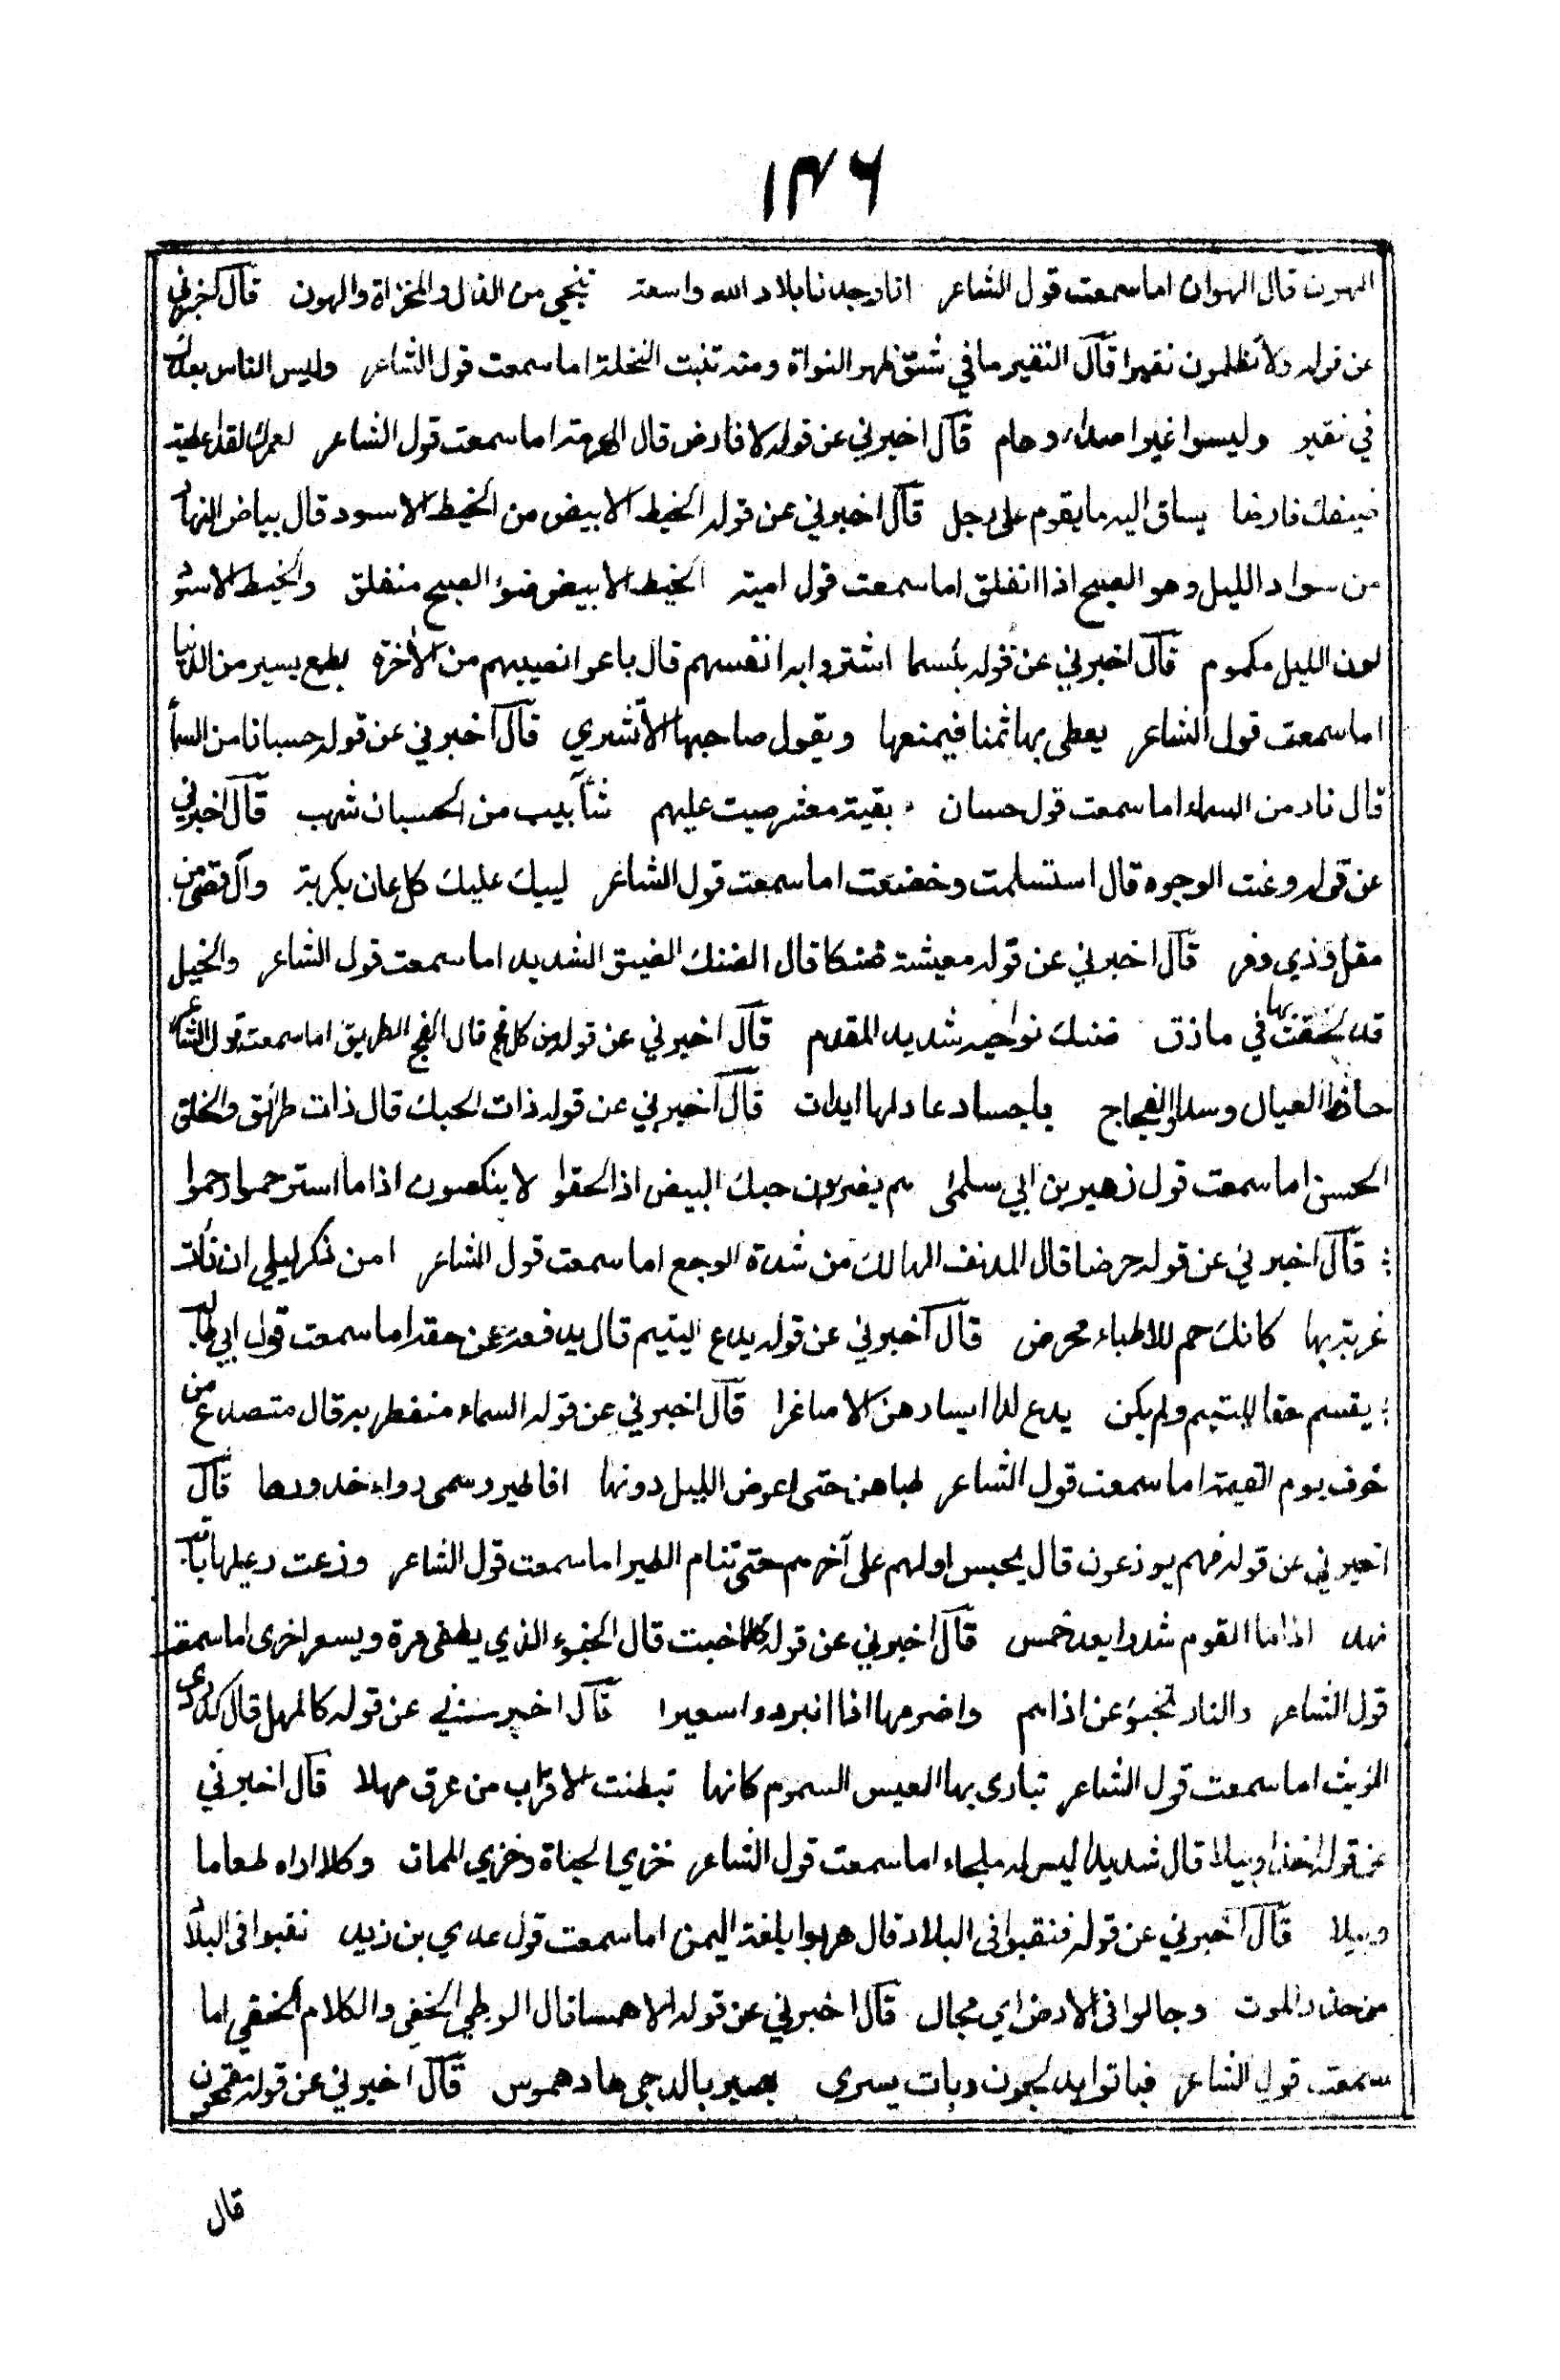 ١٣٦
الهون قال الهوان اما سمعت قول الشاعر انا وجدنا بلاد الله واسعة تنجي من الذل والمخزاة والهون قال اخبرني
عن قوله ولا يظلمون نقيرا قال النقير ما في شق ظهر النواة ومنه تنبت النخلة اما سمعت قول الشاعر وليس الناس بعدك
في نقير وليسوا غير اصداء وهام قال اخبرني عن قوله لا فارض قال الهرمة اما سمعت قول الشاعر لعمرك لقد اعطيت
ضيفك فارضا يساق اليه ما يقوم على رجل قال اخبرني عن قوله الخيط الابيض من الخيط الاسود قال بياض النهار
من سواد الليل وهو الصبح اذا انفلق اما سمعت قول امية الخيط الابيض ضوء الصبح منفلق والخيط الاسود
لون الليل مكموم قال اخبرني عن قوله بئسما اشتروا به انفسهم قال باعوا نصيبهم من الآخرة بطمع يسير من الدنيا
اما سمعت قول الشاعر يعطى بها ثمنا فيمنعها ويقول صاحبها الا تشري قال اخبرني عن قوله حسبانا من السماء
قال نار من السماء اما سمعت قول حسان بقية معشر صبت عليهم شآبيب من الحسبان شهب قال اخبرني
عن قوله وعنت الوجوه قال استسلمت وخضعت اما سمعت قول الشاعر ليبك عليك كل عان بكربة وآل قصي من
مقل وذي وفر قال اخبرني عن قوله معيشة ضنكا قال الضنك الضيق الشديد اما سمعت قول الشاعر والخيل
قد لحقت بها في مازق ضنك نواحيه شديد المقدم قال اخبرني عن قوله من كل فج قال الفج الطريق اما سمعت قول الشاعر
العيال وسدوا الفجاج باجساد عاد لها ايدات قال اخبرني عن قوله ذات الحبك قال ذات طرائق والخلق
الحسن اما سمعت قول زهير بن ابي سلمى هم يضربون حبك البيض اذ لحقوا لا ينكصون اذا ما استرحموا رحموا
قال اخبرني عن قوله حرضا قال المدنف الهالك من شدة الوجع اما سمعت قول الشاعر امن ذكر ليلى ان نأت
غربة بها كانك حم للاطباء محرض قال اخبرني عن قوله يدع اليتيم قال يدفعه عن حقه اما سمعت قول ابي طالب
يقسم حقا لليتيم ولم يكن يدع لدا ايسارهن الاصاغرا قال اخبرني عن قوله السماء منفطر به قال متصدع من
خوف يوم القيمة اما سمعت قول الشاعر طباهن حتى اعوض الليل دونها افاطير وسمى دواء خدودها قال
اخبرني عن قوله فهم يوزعون قال يحبس اولهم على آخرهم حتى تنام الطير اما سمعت قول الشاعر وزعت رعيلها باقب
نهد اذا ما القوم شدوا بعد خمس قال اخبرني عن قوله كلما خبت قال الخبوء الذي يطفى مرة ويسعر اخرى اما سمعت
قول الشاعر والنار تخبو عن اذاهم واضرمها اذا ابتردوا سعيرا قال اخبرني عن قوله كالمهل قال كدردي
الزيت اما سمعت قول الشاعر تبارى بها العيس السموم كانها تبطنت الاقراب من عرق مهلا قال اخبرني
عن قوله اخذا وبيلا قال شديدا ليس له ملجاء اما سمعت قول الشاعر خزي الحياة وخزي الممات وكلا اراه طعاما
وبيلا قال اخبرني عن قوله فنقبوا في البلاد قال هربوا بلغة اليمن اما سمعت قول عدي بن زيد نقبوا في البلاد
من حذر الموت وجالوا في الارض اي مجال قال اخبرني عن قوله الا همسا قال الوطي الخفي والكلام الخفي اما
سمعت قول الشاعر فباتوا يدلجون وبات يسرى بصير بالدجى هاد هموس قال اخبرني عن قوله مقمحون
قال